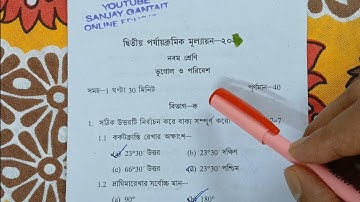 YOUTUBE
SANJAY GANTAIT
ONLINE
দ্বিতীয় পর্যায়ক্রমিক মূল্যায়ন—২০
নবম শ্রেণি
ভূগোল ও পরিবেশ
সময়—1 ঘণ্টা 30 মিনিট পূর্ণমান—40
বিভাগ—ক
1. সঠিক উত্তরটি নির্বাচন করে বাক্য সম্পূর্ণ করো 7=7
1.1 কর্কটক্রান্তি রেখার অক্ষাংশ—
(a) 23°30′ উত্তর (b) 23°30′ দক্ষিণ
(c) 66°30′ উত্তর (d) 23°30′ পশ্চিম
1.2 দ্রাঘিমারেখার সর্বোচ্চ মান—
(a) 90° (b) 180°